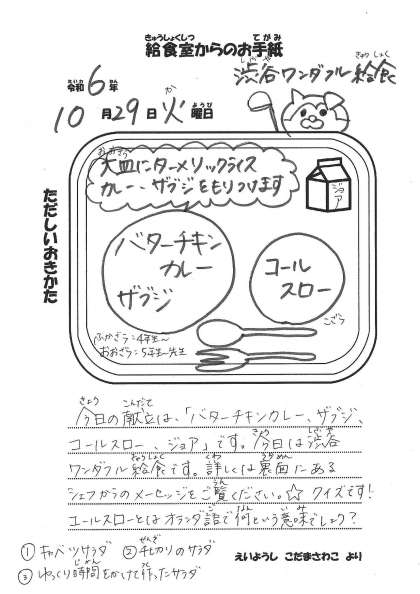 給食室からのお手紙
渋谷ワンダフル給食
令和6年
10月29日火曜日
大皿にターメリックライス
カレー、サブジをもりつけます
ジョア
ただしいおきかた
バターチキン
カレー
サブジ
コール
スロー
こざら
ふかざら:4年生〜
おおざら:5年生〜先生
今日の献立は、「バターチキンカレー、サブジ、
コールスロー、ジョア」です。今日は渋谷
ワンダフル給食です。詳しくは裏面にある
シェフからのメッセージをご覧ください。☆クイズです!
コールスローとはオランダ語で何という意味でしょう?
①キャベツサラダ ②千切りのサラダ
③ゆっくり時間をかけて作ったサラダ
えいようし こだまさわこ より